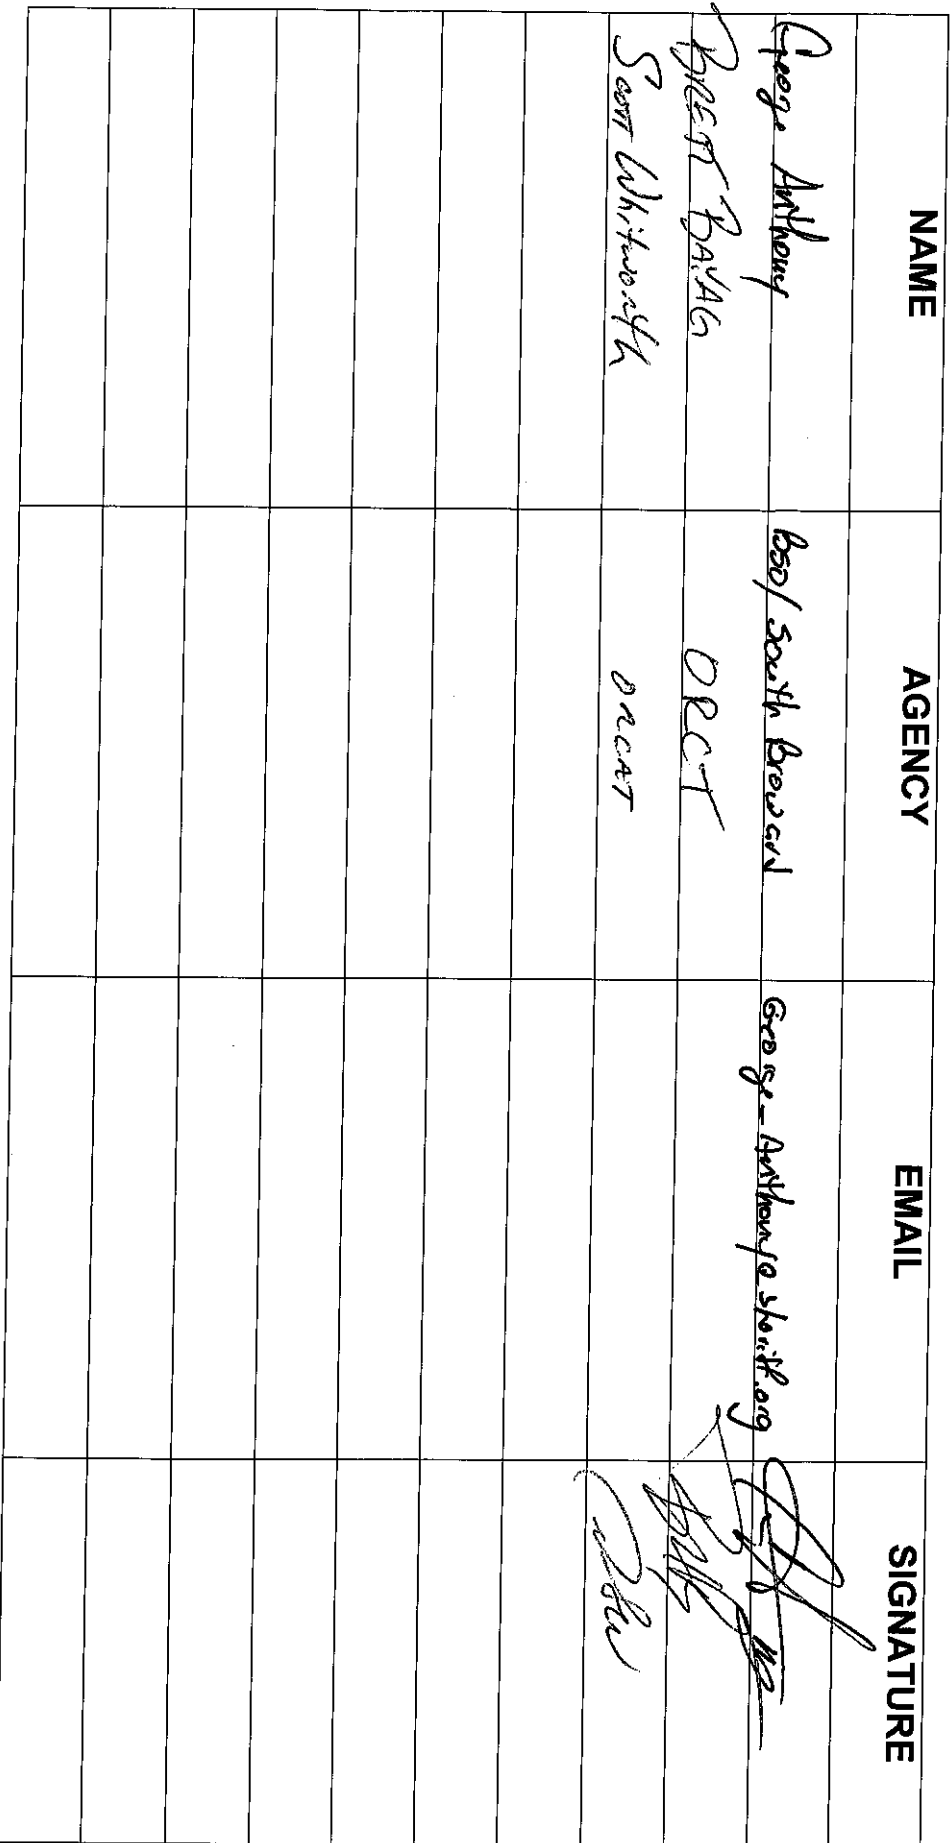 NAME AGENCY EMAIL SIGNATURE
George Anthony BSO/ South Broward George_Anthony@sheriff.org
BRETT BAYAG ORCT
Scott Whitworth ORCAT